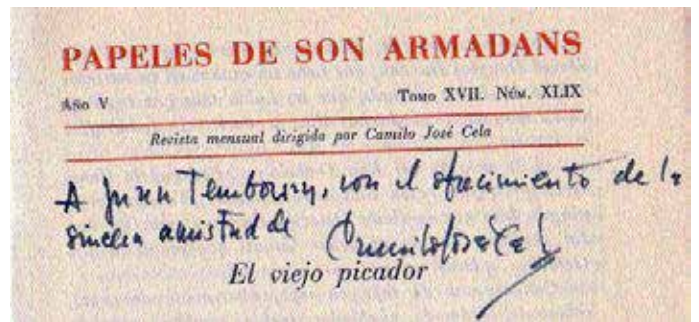 PAPELES DE SON ARMADANS
Año V
Tomo XVII. Núm. XLIX
Revista mensual dirigida por Camilo José Cela
A Juan Temboury, con el ofrecimiento de la
sincera amistad de Camilo José Cela
El viejo picador